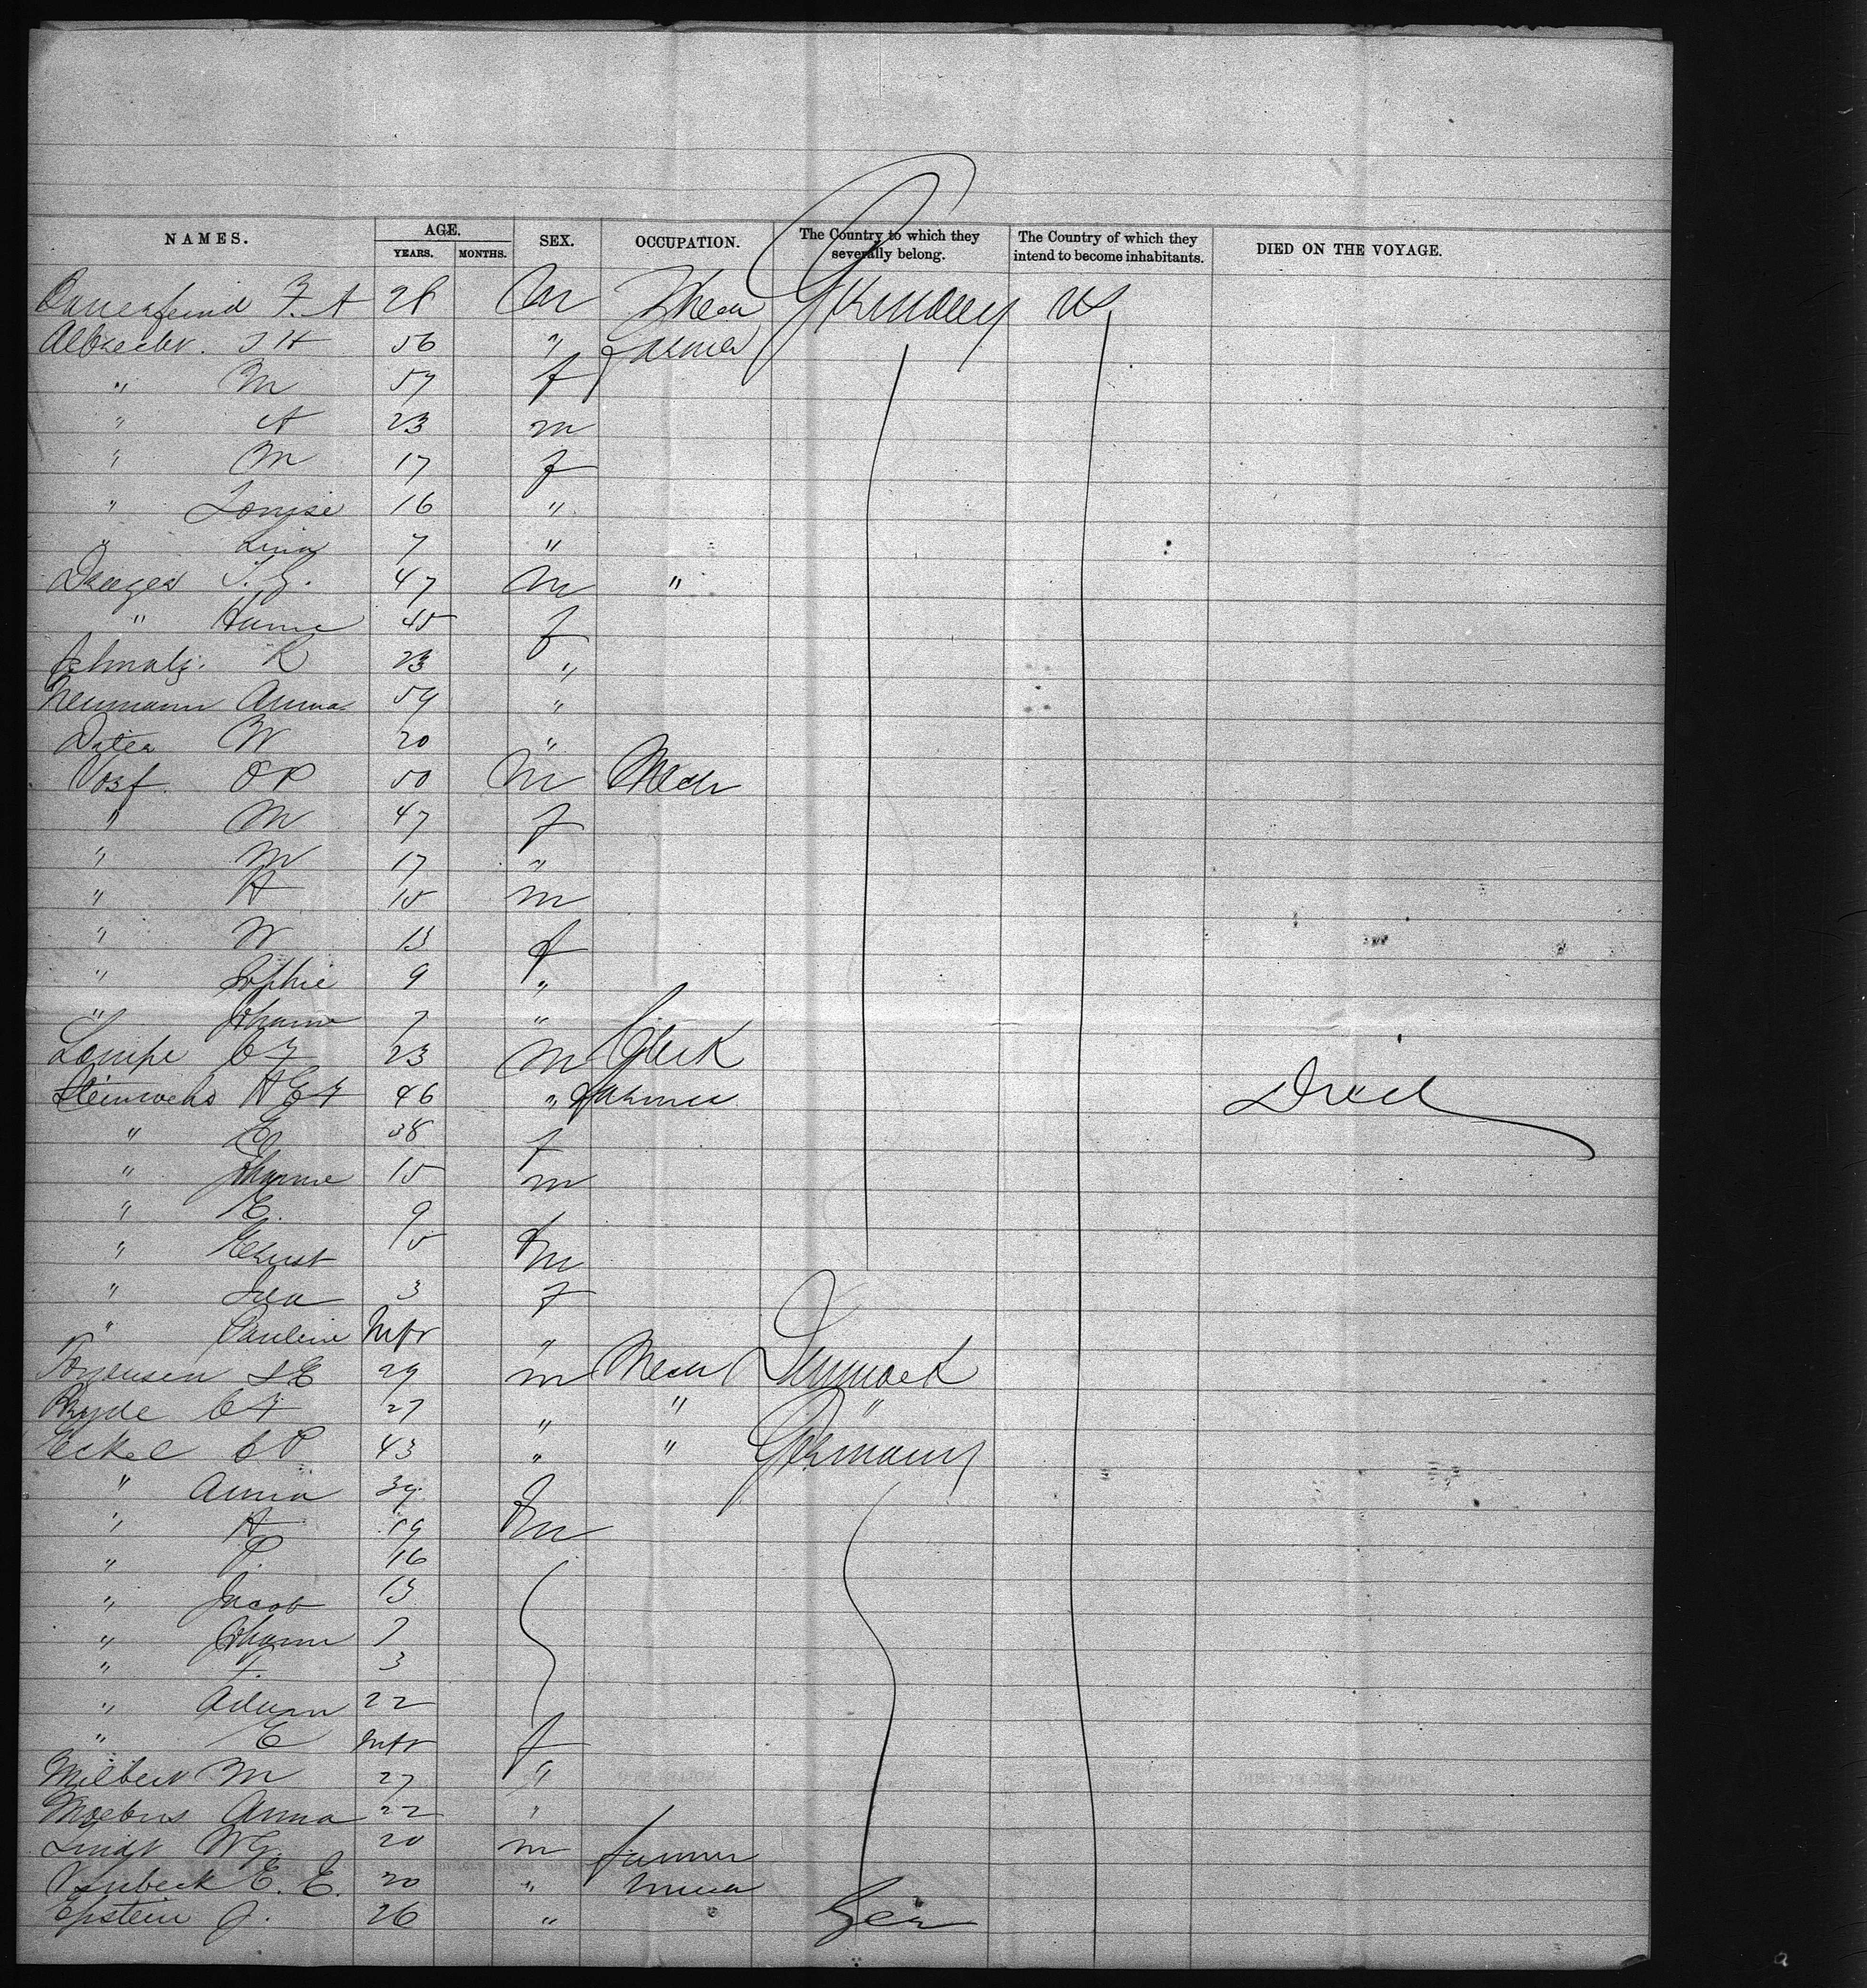 NAMES. AGE. SEX. OCCUPATION. The Country to which they severally belong. The Country of which they intend to become inhabitants. DIED ON THE VOYAGE.
YEARS. MONTHS.
F. A 28 m Germany US
Albrecht. J H 56 " farmer
" M 57 f
" A 23 m
" M 17 f
" Louise 16 "
" Lina 7 "
47 m "
" Hanne 45 f
Schmalz. K 23 "
Neumann Anna 59 "
W 20 "
Voss. O P 50 m Mech
" M 47 f
" M 17 "
" H 15 m
" W 13 f
" Sophie 9 "
" Johanne 7 "
Lampe C F 23 m Clerk
Steinwehs H E F 46 " farmer Died
" E 38 f
" Johanne 15 m
" E. 9 f
" Ernst 5 m
" Ida 3 f
" Pauline "
29 m Mech Denmark
C F 27 " " "
Eckel C P 43 " " Germany
" Anna 39 f
" H 19 m
" P. 16
" Jacob 13
" Johann 7
" 3
" Adam 22
" E f
Milbert M 27 "
Moebus Anna 22 "
Lindt W G. 20 m farmer
E. E. 20 "
Epstein J. 26 " Ger